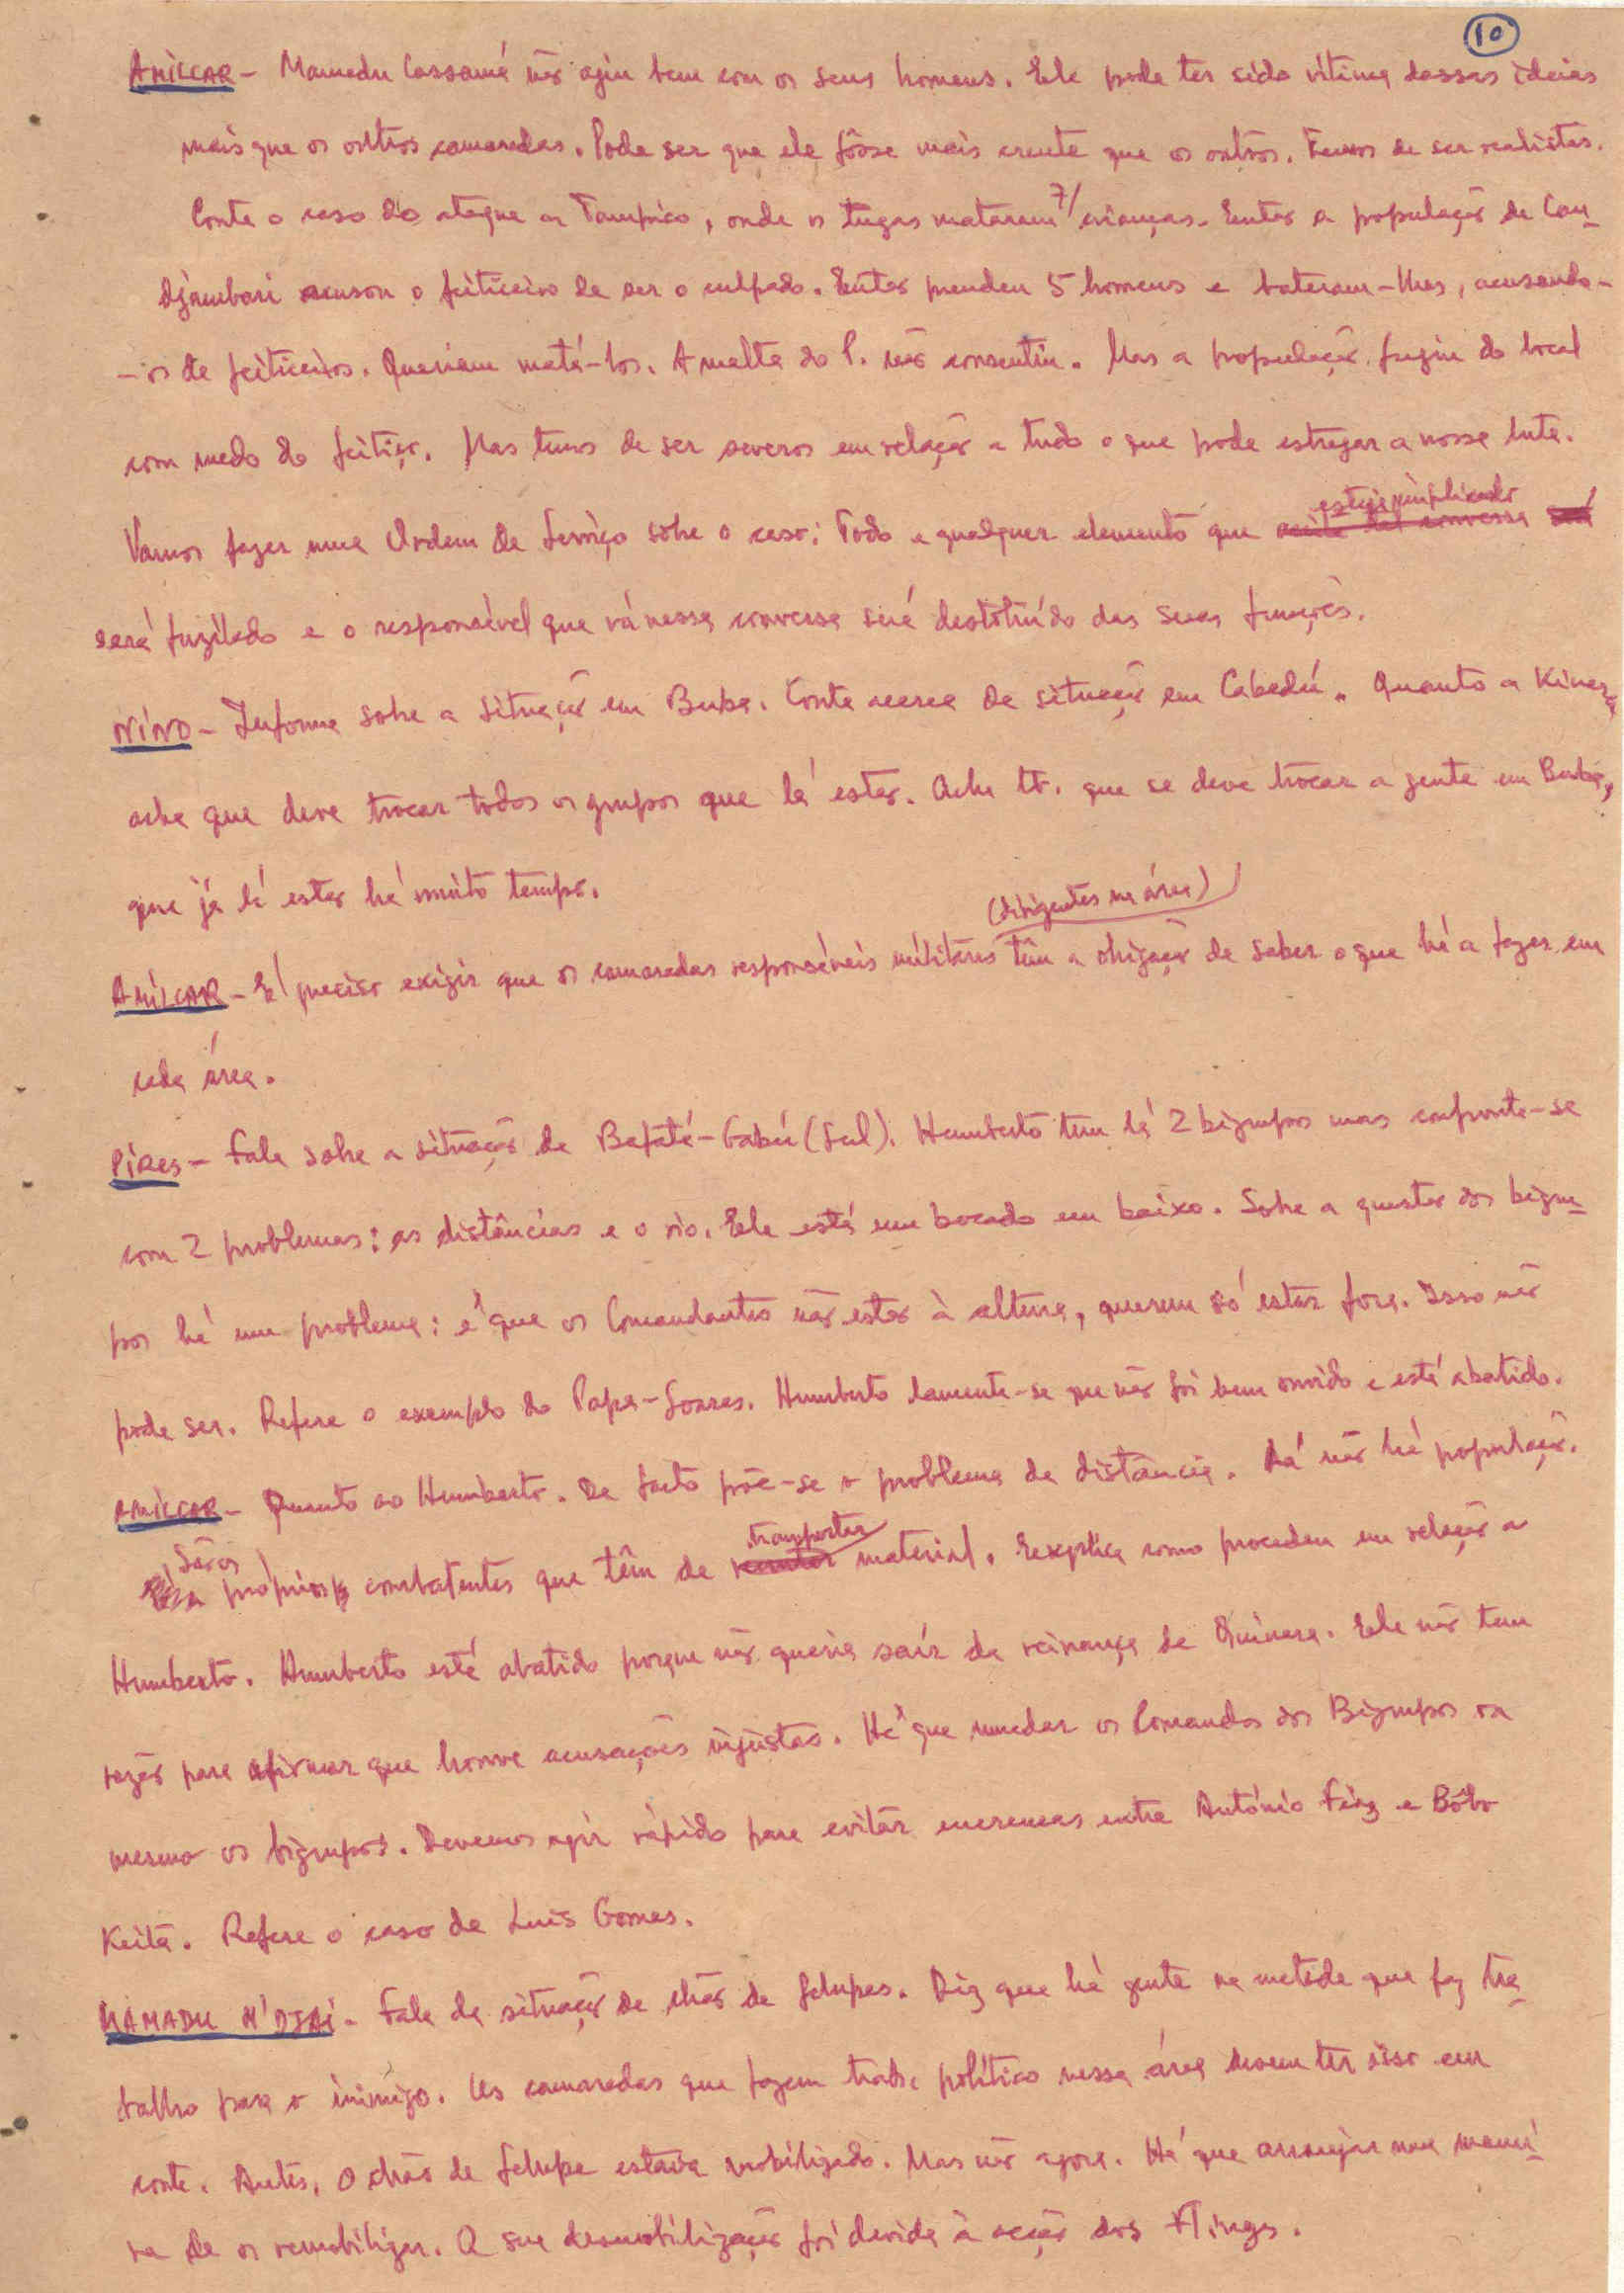 10
AMÍLCAR - Mamadu Cassamá não agiu bem com os seus homens. Ele pode ter sido vítima dessas ideias
mais que os outros camaradas. Pode ser que ele fôsse mais crente que os outros. Temos de ser realistas.
Conta o caso do ataque a Tampico, onde os tugas mataram 7/ crianças. Então a população de Can-
djambari acusou o feiticeiro de ser o culpado. Então prendeu 5 homens e bateram-lhes, acusando-
-os de feiticeiros. Queriam matá-los. A malta do P. não consentiu. Mas a população fugiu do local
com medo do feitiço. Mas temos de ser severos em relação a tudo o que pode estragar a nossa luta.
esteja implicado
Vamos fazer uma Ordem de Serviço sôbre o caso: Todo e qualquer elemento que
será fuzilado e o responsável que vá nessa conversa será destituído das suas funções.
NINO - Informa sobre a situação em Buba. Conta acerca da situação em Cabedú. Quanto a Kinara,
acha que deve trocar todos os grupos que lá estão. Acha tb. que se deve trocar a gente em Buba,
que já lá estão há muito tempo.
(dirigentes na área)
AMÍLCAR - É preciso exigir que os camaradas responsáveis militares têm a obrigação de saber o que há a fazer em
cada área.
PIRES - Fala sobre a situação de Bafatá-Gabú (Sul). Humberto tem lá 2 bigrupos mas confronta-se
com 2 problemas: as distâncias e o rio. Ele está um bocado em baixo. Sobre a questão dos bigru-
pos há um problema: é que os Comandantes não estão à altura, querem só estar fora. Isso não
pode ser. Refere o exemplo do Papa-Soares. Humberto lamenta-se que não foi bem ouvido e está abatido.
AMÍLCAR - Quanto ao Humberto. De facto põe-se o problema da distância. Lá não há população.
São os transportar
próprios combatentes que têm de material. Explica como procedeu em relação a
Humberto. Humberto está abatido porque não queria sair da vizinhança de Quinara. Ele não tem
razão para afirmar que houve acusações injustas. Há que mudar os Comandos dos Bigrupos ou
mesmo os bigrupos. Devemos agir rápido para evitar encrencas entre António Fiaz e Bôbo
Keita. Refere o caso de Luís Gomes.
MAMADU N'DJAI - Fala da situação de chão de Felupes. Diz que há gente na metade que faz tra-
balho para o inimigo. Os camaradas que fazem trab. político nessa área devem ter isso em
conta. Antes, o chão de Felupe estava mobilizado. Mas não agora. Há que arranjar uma manei-
ra de os remobilizar. A sua desmobilização foi devida à acção dos Flingos.